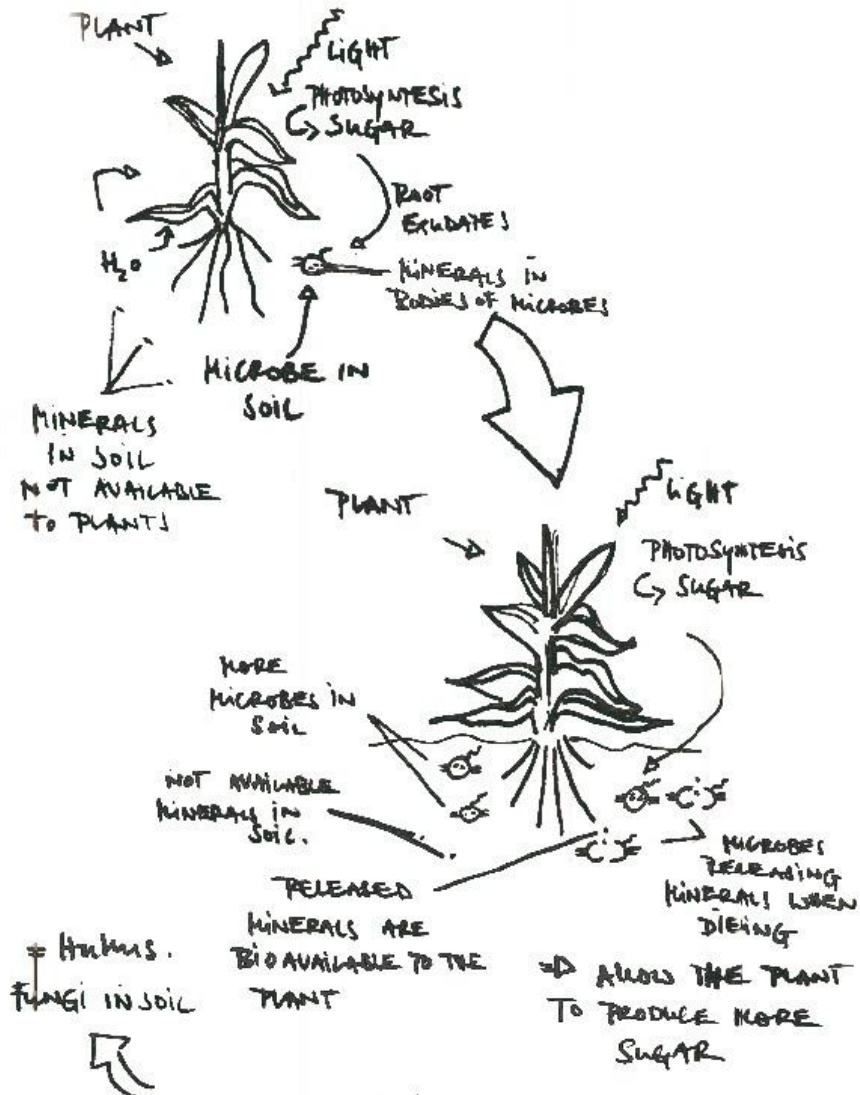 PLANT
LIGHT
PHOTOSYNTESIS
SUGAR
ROOT
EXUDATES
H₂O
MINERALS IN
BODIES OF MICROBES
MICROBE IN
SOIL
MINERALS
IN SOIL
NOT AVAILABLE
TO PLANTS
PLANT
LIGHT
PHOTOSYNTESIS
SUGAR
MORE
MICROBES IN
SOIL
NOT AVAILABLE
MINERALS IN
SOIL.
MICROBES
RELEASING
MINERALS WHEN
DIEING
RELEASED
MINERALS ARE
BIOAVAILABLE TO THE
PLANT
⇒ ALLOW THE PLANT
TO PRODUCE MORE
SUGAR
= HUMUS.
FUNGI IN SOIL